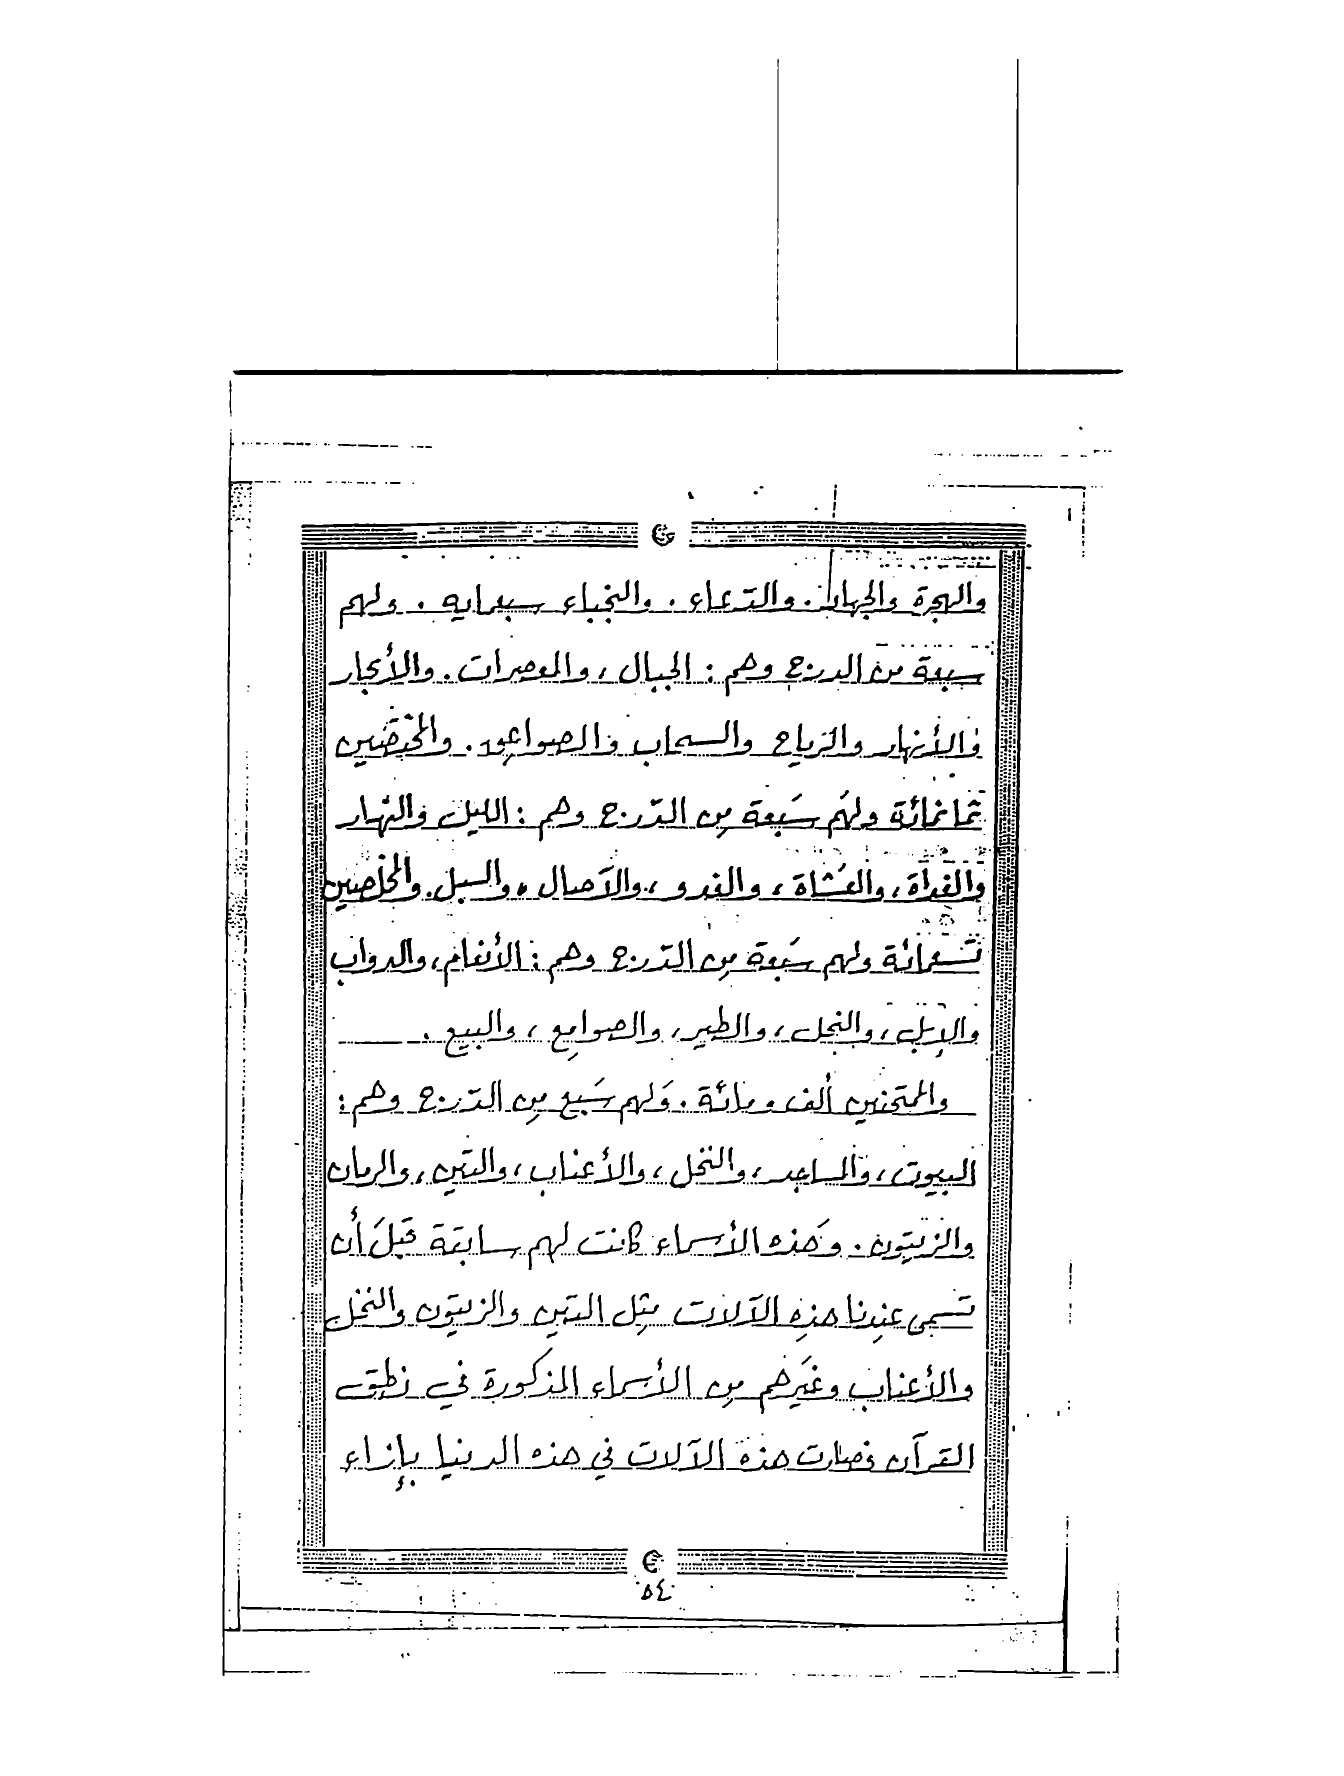 والهجرة والجهاد. والدّعاء. والنجباء سبعمايه. ولهم
سبعة من الدرج وهم: الجبال، والمعصرات. والأبحار
والأنهار والرّياح والسحاب والصواعق. والمختصّين
ثمانمائة ولهَم سَبعة مِن الدّرج وهم: الليل والنهار
والغداة، والعشاة، والغدو، والآصال، والسبل. والمخلصين
تسعمائة ولهم سَبعة مِن الدّرج وهم: الأنعام، والدواب
والإبل، والنحل، والطير، والصوامِع، والبيع.
والممتحنين ألف ومائة. وَلهم سَبع مِن الدّرج وهم:
البيوت، والمساجد، والنخل، والأعناب، والتين، والرمان
والزيتون. وَهَذه الأسماء كانت لهم سابقة قبلَ أن
تسمى عنِدنا هذِه الآلات مثِل التين والزيتون والنخل
والأعناب وغَيرهم مِن الأسماء المذكورة في نطق
القرآن فصارت هذه الآلات في هذه الدنيا بإزاء
٥٤